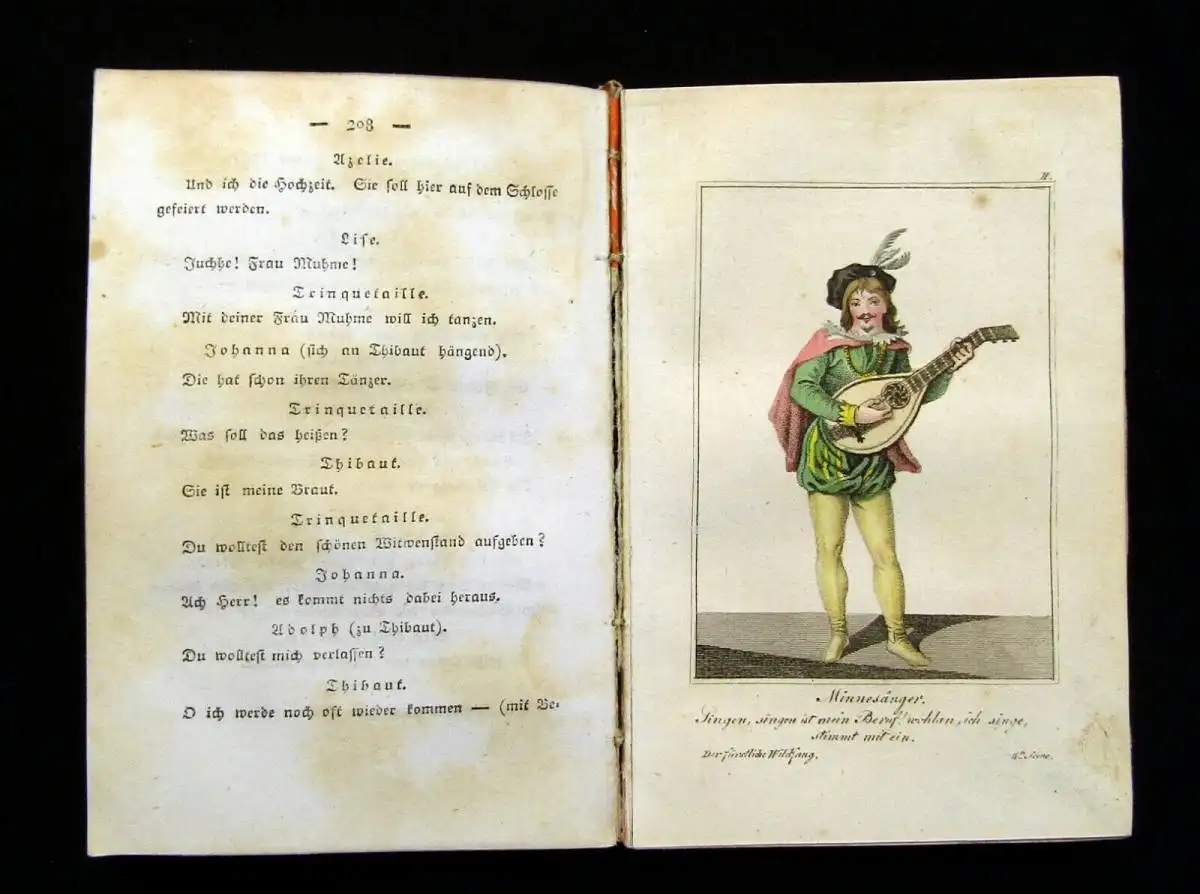 — 208 —
Azelie.
Und ich die Hochzeit. Sie soll hier auf dem Schlosse
gefeiert werden.
Lise.
Juchhe! Frau Muhme!
Trinquetaille.
Mit deiner Frau Muhme will ich tanzen.
Johanna (sich an Thibaut hängend).
Die hat schon ihren Tänzer.
Trinquetaille.
Was soll das heißen?
Thibaut.
Sie ist meine Braut.
Trinquetaille.
Du wolltest den schönen Witwenstand aufgeben?
Johanna.
Ach Herr! es kommt nichts dabei heraus.
Adolph (zu Thibaut).
Du wolltest mich verlassen?
Thibaut.
O ich werde noch oft wieder kommen — (mit Be-
II.
Minnesänger.
Singen, singen ist mein Beruf! wohlan, ich singe,
stimmt mit ein.
Der fürstliche Wildfang.
Scene.